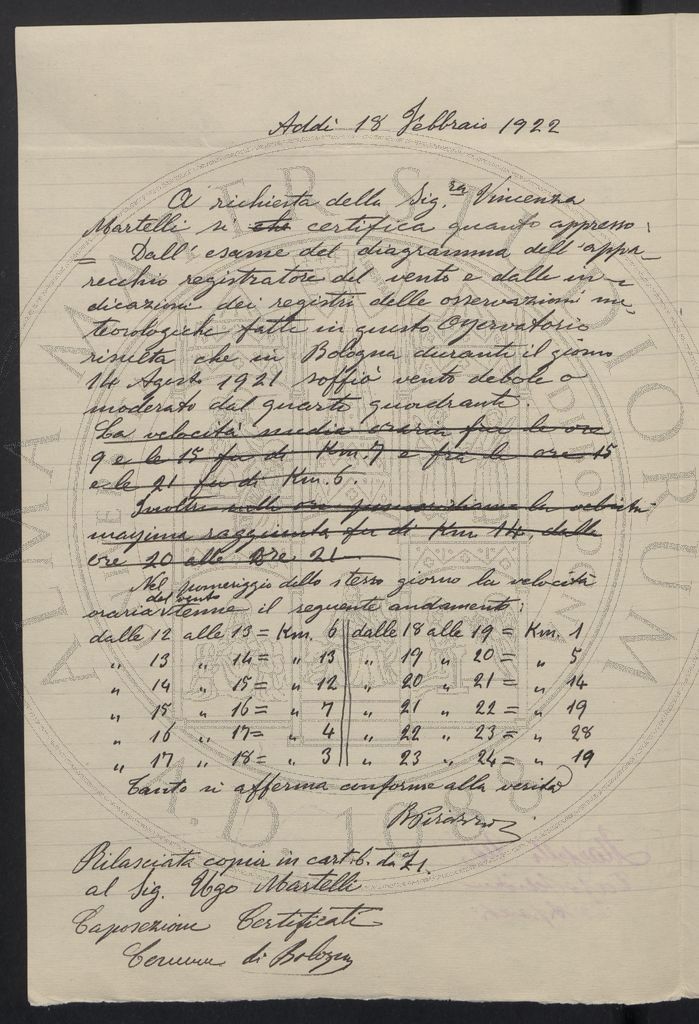 Addì 18 Febbraio 1922
A richiesta della Sig.ra Vincenza
Martelli si che certifica quanto appresso:
= Dall'esame del diagramma dell'appa-
recchio registratore del vento e dalle in-
dicazioni dei registri delle osservazioni me-
teorologiche fatte in questo Osservatorio
risulta che in Bologna durante il giorno
14 Agosto 1921 soffiò vento debole o
moderato dal quarto quadrante.
La velocità media oraria fra le ore
9 e le 15 fu di Km. 7 e fra le ore 15
e le 21 fu di Km. 6.
Inoltre nelle ore pomeridiane la velocità
massima raggiunta fu di Km 14, dalle
ore 20 alle Ore 21
Nel pomeriggio dello stesso giorno la velocità
oraria del vento tenne il seguente andamento:
dalle 12 alle 13 = Km. 6 || dalle 18 alle 19 = Km. 1
" 13 " 14 = " 13 || " 19 " 20 = " 5
" 14 " 15 = " 12 || " 20 " 21 = " 14
" 15 " 16 = " 7 || " 21 " 22 = " 19
" 16 " 17 = " 4 || " 22 " 23 = " 28
" 17 " 18 = " 3 || " 23 " 24 = " 19
Tanto si afferma conforme alla verità
Rilasciata copia in cart. b. da £1.
al Sig. Ugo Martelli
Caposezione Certificati
Comune di Bologna
ALMA MATER STUDIORUM
A.D. 1088